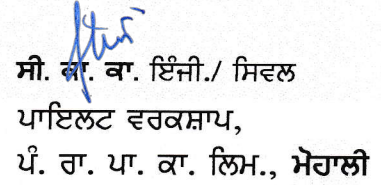 ਸੀ. ਕਾ. ਕਾ. ਇੰਜੀ./ ਸਿਵਲ
ਪਾਇਲਟ ਵਰਕਸ਼ਾਪ,
ਪੰ. ਰਾ. ਪਾ. ਕਾ. ਲਿਮ., ਮੋਹਾਲੀ